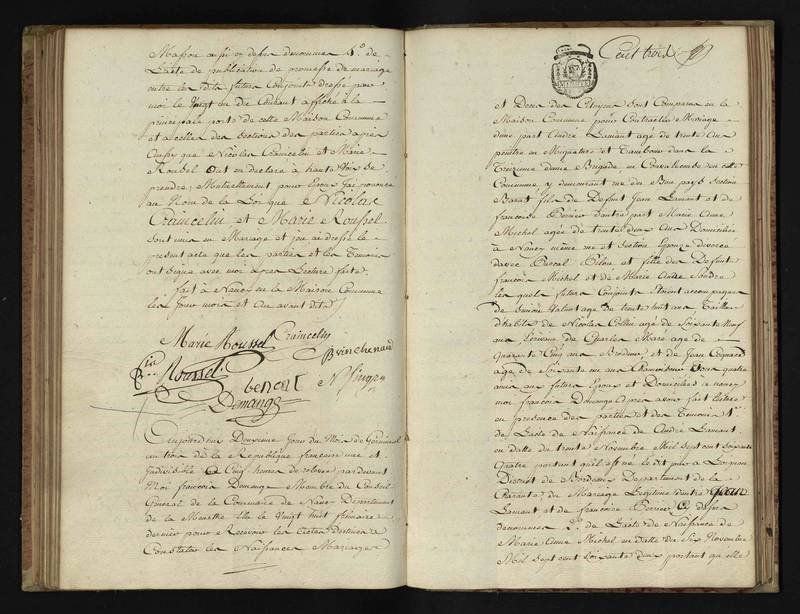 Masson aussi ci dessus denommés 4.° de
L'acte de publication de promesse de mariage
entre les dits futurs Conjoints dressé par
moi le Vingt un du Courant affiché à la
principale porte de cette Maison Commune
et a celles des Sections des parties après
aussy que Nicolas Craincelin et Marie
Roussel ont eu declaré a haute Voix se
prendre Mutuellement pour Epoux J'ai prononcé
au Nom de la Loi que Nicolas
Craincelin et Marie Roussel
sont unis en Mariage et j'ai redigé le
present acte que les parties et les Temoins
ont signé avec moi après Lecture faite.
fait à Nancy en la Maison Commune
les Jour mois et an avant dits
Marie Roussel Craincelin
Roussel
benoit
Demange
Aujourd'hui Deuxieme Jour du Mois de Germinal
an trois de la Republique francaise une et
Indivisible à Cinq heures de relevée par devant
Moi françois Demange Membre du Conseil
General de la Commune de Nancy Departement
de la Meurthe élu le Vingt huit frimaire
dernier pour Recevoir les Actes destinés a
Constater les Naissances Mariages
Cent trois
et Deces des Citoyens Sont Comparus en la
Maison Commune pour Contracter Mariage
dune part André Lamant agé de trente ans
peintre en Mignature et Tambour dans la
Treizieme demie Brigade, en Convalescence en cette
Commune y demeurant rue du Bon pays Section
Barat fils de Defunt Jean Lamant et de
francoise Perrier d'autre part Marie Anne
Michel agée de trente deux ans Domiciliée
à Nancy même rue et Section Epouse divorcée
davec Pascal Pilon et fille des Defunts
françois Michel et de Marie Anne
les quels futurs Conjoints etoient accompagnés
de agé de trente huit ans Tailleur
d'habits de Nicolas Collin agé de Soixante Neuf
ans de Charles Mare agé de
Quarante Cinq ans Brodeur et de Jean
agé de Soixante un ans Chamoiseur tous quatre
amis aux futurs Epoux et Domiciliés a Nancy
moi françois Demange après avoir fait Lecture
en presence des parties et des Temoins 1.°
de Lacte de Naissance de André Lamant
en datte du trente Novembre Mil Sept cent Soixante
Quatre portant qu'il est né le dit jour a
District de Bordeaux Departement de la
Charante du Mariage Legitime dentre Jean
Lamant et de francoise Perrier Ci dessus
denommés 2.° de Lacte de Naissance de
Marie Anne Michel en datte du Six Novembre
Mil Sept cent Soixante deux portant qu'elle